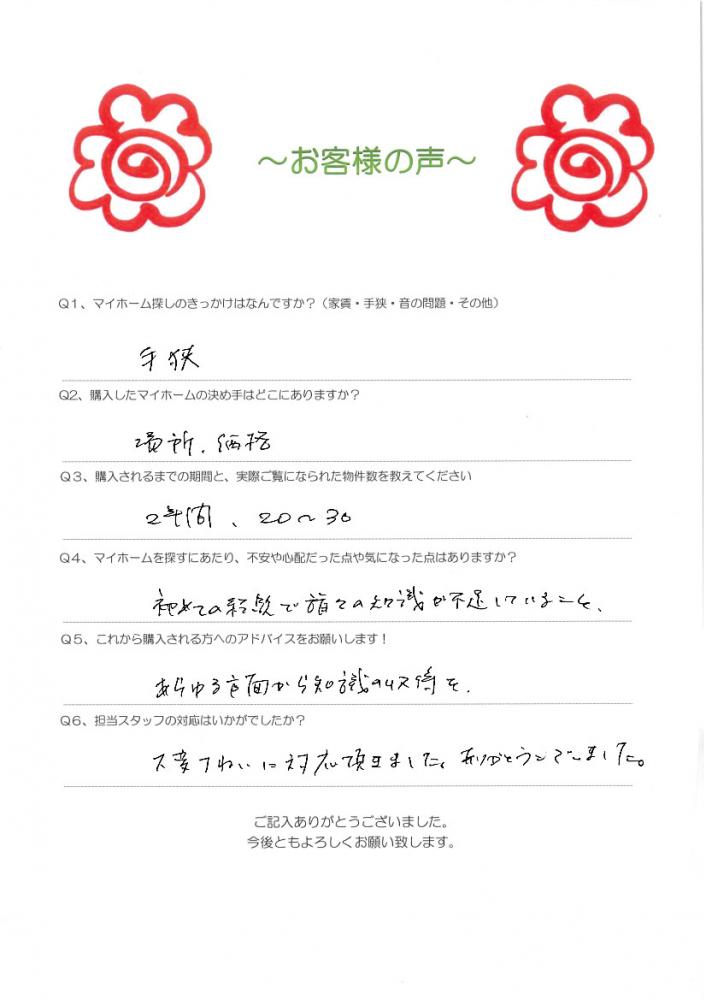 ～お客様の声～
Q1、マイホーム探しのきっかけはなんですか？（家賃・手狭・音の問題・その他）
手狭
Q2、購入したマイホームの決め手はどこにありますか？
場所、価格
Q3、購入されるまでの期間と、実際ご覧になられた物件数を教えてください
2年間、20～30
Q4、マイホームを探すにあたり、不安や心配だった点や気になった点はありますか？
初めての経験で諸々の知識が不足していることを、
Q5、これから購入される方へのアドバイスをお願いします！
あらゆる方面から知識の収得を、
Q6、担当スタッフの対応はいかがでしたか？
大変ていねいに対応頂きました。ありがとうございました。
ご記入ありがとうございました。
今後ともよろしくお願い致します。